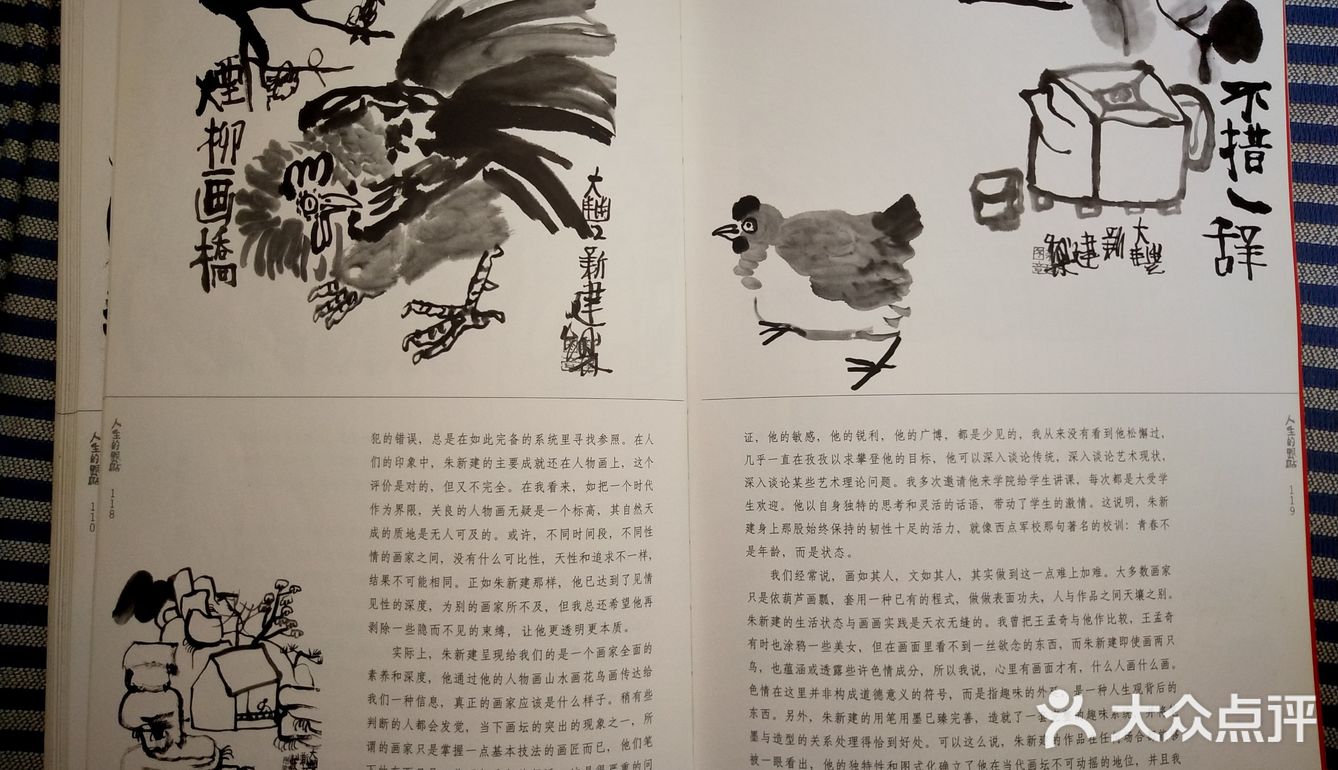 煙柳画橋
大豐新建
不措一辞
大豐新建
人生的
118
人生的
110
犯的错误，总是在如此完备的系统里寻找参照。在人
们的印象中，朱新建的主要成就还在人物画上，这个
评价是对的，但又不完全。在我看来，如把一个时代
作为界限，关良的人物画无疑是一个标高，其自然天
成的质地是无人可及的。或许，不同时间段，不同性
情的画家之间，没有什么可比性，天性和追求不一样，
结果不可能相同。正如朱新建那样，他已达到了见情
见性的深度，为别的画家所不及，但我总还希望他再
剥除一些隐而不见的束缚，让他更透明更本质。
实际上，朱新建呈现给我们的是一个画家全面的
素养和深度，他通过他的人物画山水画花鸟画传达给
我们一种信息，真正的画家应该是什么样子。稍有些
判断的人都会发觉，当下画坛的突出的现象之一，所
谓的画家只是掌握一点基本技法的画匠而已，他们笔
证，他的敏感，他的锐利，他的广博，都是少见的，我从来没有看到他松懈过，
几乎一直在孜孜以求攀登他的目标，他可以深入谈论传统，深入谈论艺术现状，
深入谈论某些艺术理论问题。我多次邀请他来学院给学生讲课，每次都是大受学
生欢迎。他以自身独特的思考和灵活的话语，带动了学生的激情。这说明，朱新
建身上那股始终保持的韧性十足的活力，就像西点军校那句著名的校训：青春不
是年龄，而是状态。
我们经常说，画如其人，文如其人，其实做到这一点难上加难。大多数画家
只是依葫芦画瓢，套用一种已有的程式，做做表面功夫，人与作品之间天壤之别。
朱新建的生活状态与画画实践是天衣无缝的。我曾把王孟奇与他作比较，王孟奇
有时也涂鸦一些美女，但在画面里看不到一丝欲念的东西，而朱新建即使画两只
鸟，也蕴涵或透露些许色情成分，所以我说，心里有画面才有，什么人画什么画。
色情在这里并非构成道德意义的符号，而是指趣味的外 是一种人生观背后的
东西。另外，朱新建的用笔用墨已臻完善，造就了一套 趣味系统
墨与造型的关系处理得恰到好处。可以这么说，朱新建的作品在任何场合
被一眼看出，他的独特性和图式化确立了他在当代画坛不可动摇的地位，并且我
人生的
119
大众点评